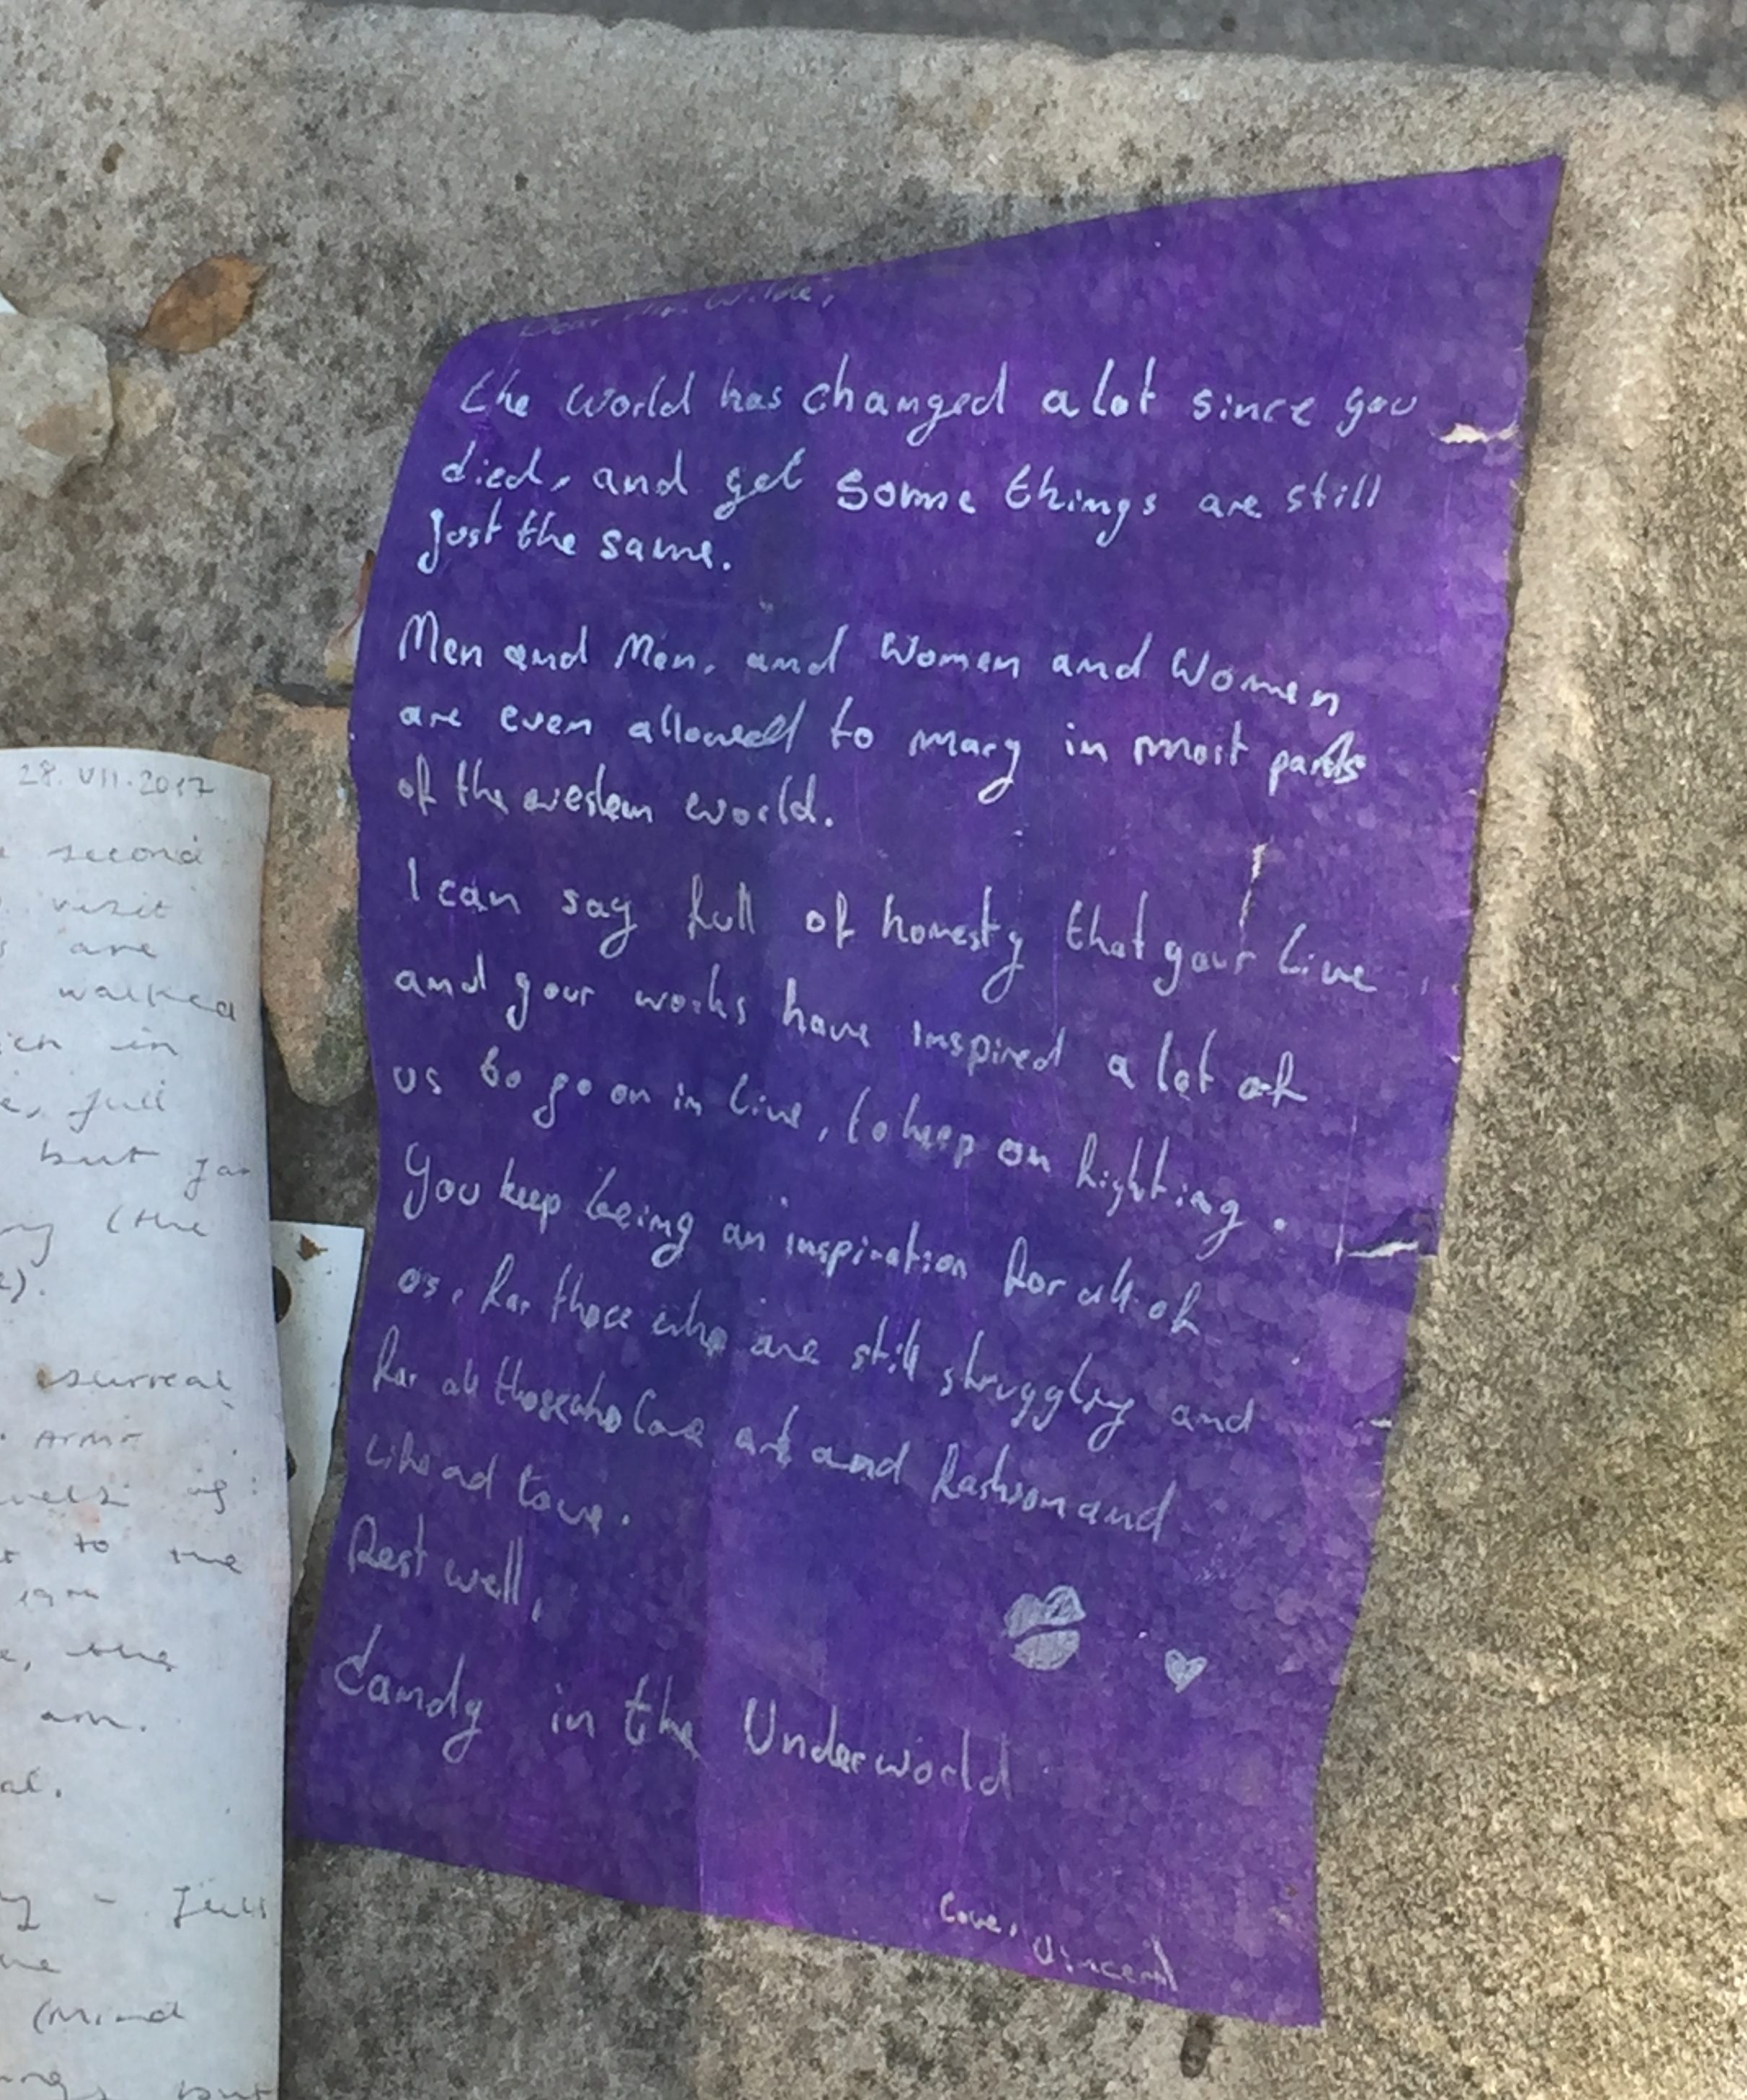 Dear Mr. Wilde,
the world has changed a lot since you
died, and yet some things are still
just the same.
Men and Men, and Women and Women
are even allowed to mary in most parts
of the western world.
I can say full of honesty that your live
and your works have inspired a lot of
us to go on in live, to keep on fighting.
You keep being an inspiration for all of
us, for those who are still struggling and
for all those who love art and fashion and
Rest well,
dandy in the Underworld
Love,
Vincent
28.VII.2017
second
visit
are
walked
in
full
but
(the
surreal
to the
the
am.
full
(Mind
but